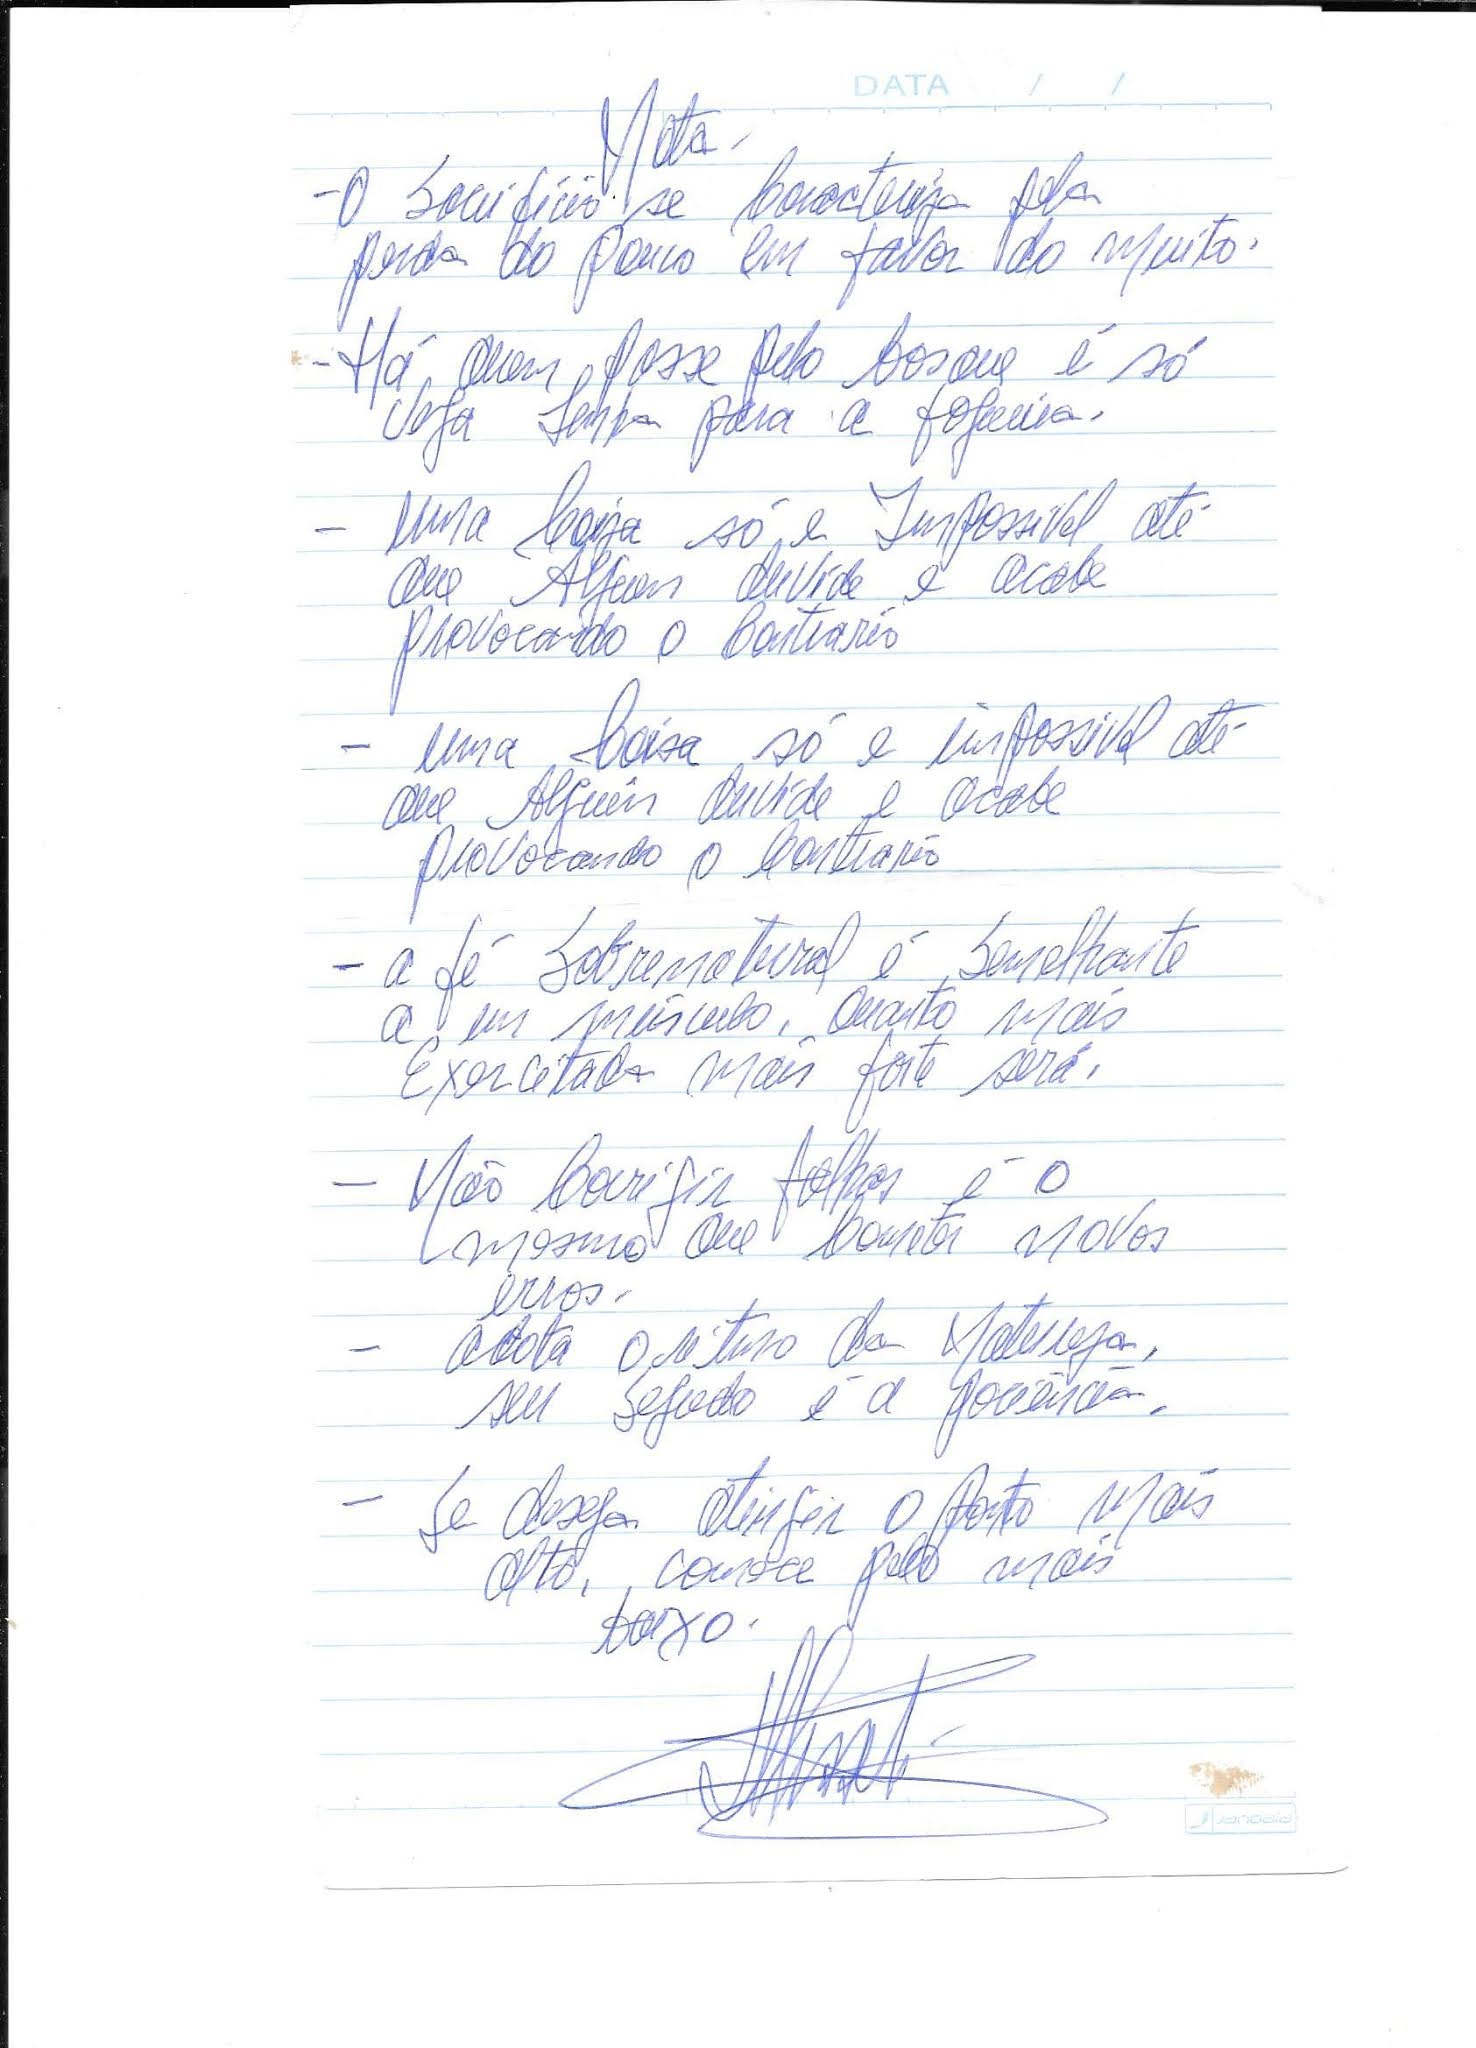 DATA / /
Nota.
- O Sacrifício se Caracteriza pela
perda do pouco em favor do muito.
- Há quem passe pelo bosque é só
veja lenha para a fogueira.
- uma Coisa só e Impossível até
que Alguem duvide e acabe
provocando o Contrario
- uma Coisa só e impossivel até
que Alguém duvide e acabe
provocando o Contrario
- a fé Sobrenatural é Semelhante
a um músculo, quanto mais
Exercitada mais forte será.
- Não Corrigir falhas é o
mesmo que Cometer novos
erros.
- adota o ritmo da Natureza,
seu Segredo é a paciência.
- Se deseja atingir o ponto mais
alto, comece pelo mais
baixo.